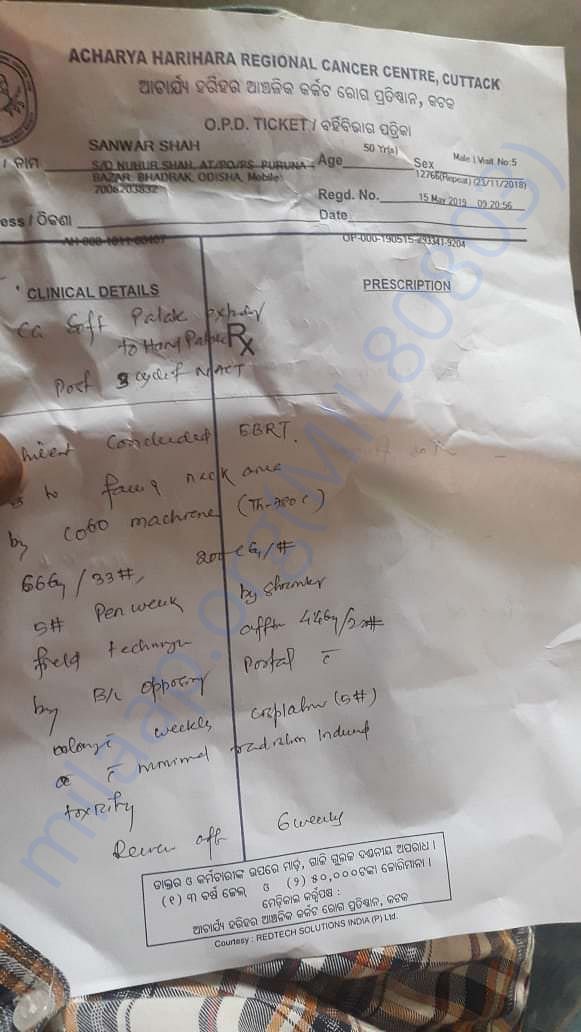 ACHARYA HARIHARA REGIONAL CANCER CENTRE, CUTTACK
ଆଚାର୍ଯ୍ୟ ହରିହର ଆଞ୍ଚଳିକ କର୍କଟ ରୋଗ ପ୍ରତିଷ୍ଠାନ, କଟକ
O.P.D. TICKET / ବର୍ହିବିଭାଗ ପତ୍ରିକା
/ ନାମ SANWAR SHAH Age 50 Yr(s) Sex Male | Visit No 5
S/O NUHUR SHAH, AT/PO/PS- PURUNA
BAZAR, BHADRAK, ODISHA, Mobile: 12766(Repeat) (23/11/2018)
7006203832 Regd. No. 15 May 2019 09:20:56
ess / ଠିକଣା Date
OP-000-190515-
CLINICAL DETAILS PRESCRIPTION
Ca Soft Palate
to Hard Palate Rx
Post 3 cycle NACT
concluded EBRT.
to face & neck area
by CO60 machine (Th-780 C)
66Gy / 33#, 200 cGy/#
5# Per week by shrinking
field technique after 44Gy/22#
by B/L opposing portal c̄
weekly cisplatin (5#)
c̄ minimal radiation induced
toxicity
Review aft 6 weeks
ଡାକ୍ତର ଓ କର୍ମଚାରୀଙ୍କ ଉପରେ ମାଡ଼, ଗାଳି ଗୁଲଜ ଦଣ୍ଡନୀୟ ଅପରାଧ ।
(୧) ୩ ବର୍ଷ ଜେଲ୍ ଓ (୨) ୫୦,୦୦୦ଟଙ୍କା ଜୋରିମାନା ।
ମେଡ଼ିକାଲ କର୍ତ୍ତୃପକ୍ଷ :
ଆଚାର୍ଯ୍ୟ ହରିହର ଆଞ୍ଚଳିକ କର୍କଟ ରୋଗ ପ୍ରତିଷ୍ଠାନ, କଟକ
Courtesy : REDTECH SOLUTIONS INDIA (P) Ltd.
milaap.org(MIL80803)